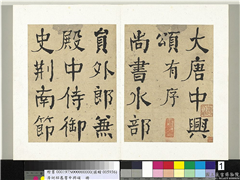 大唐中興
頌有序
尚書水部
員外郎兼
殿中侍御
史荆南節